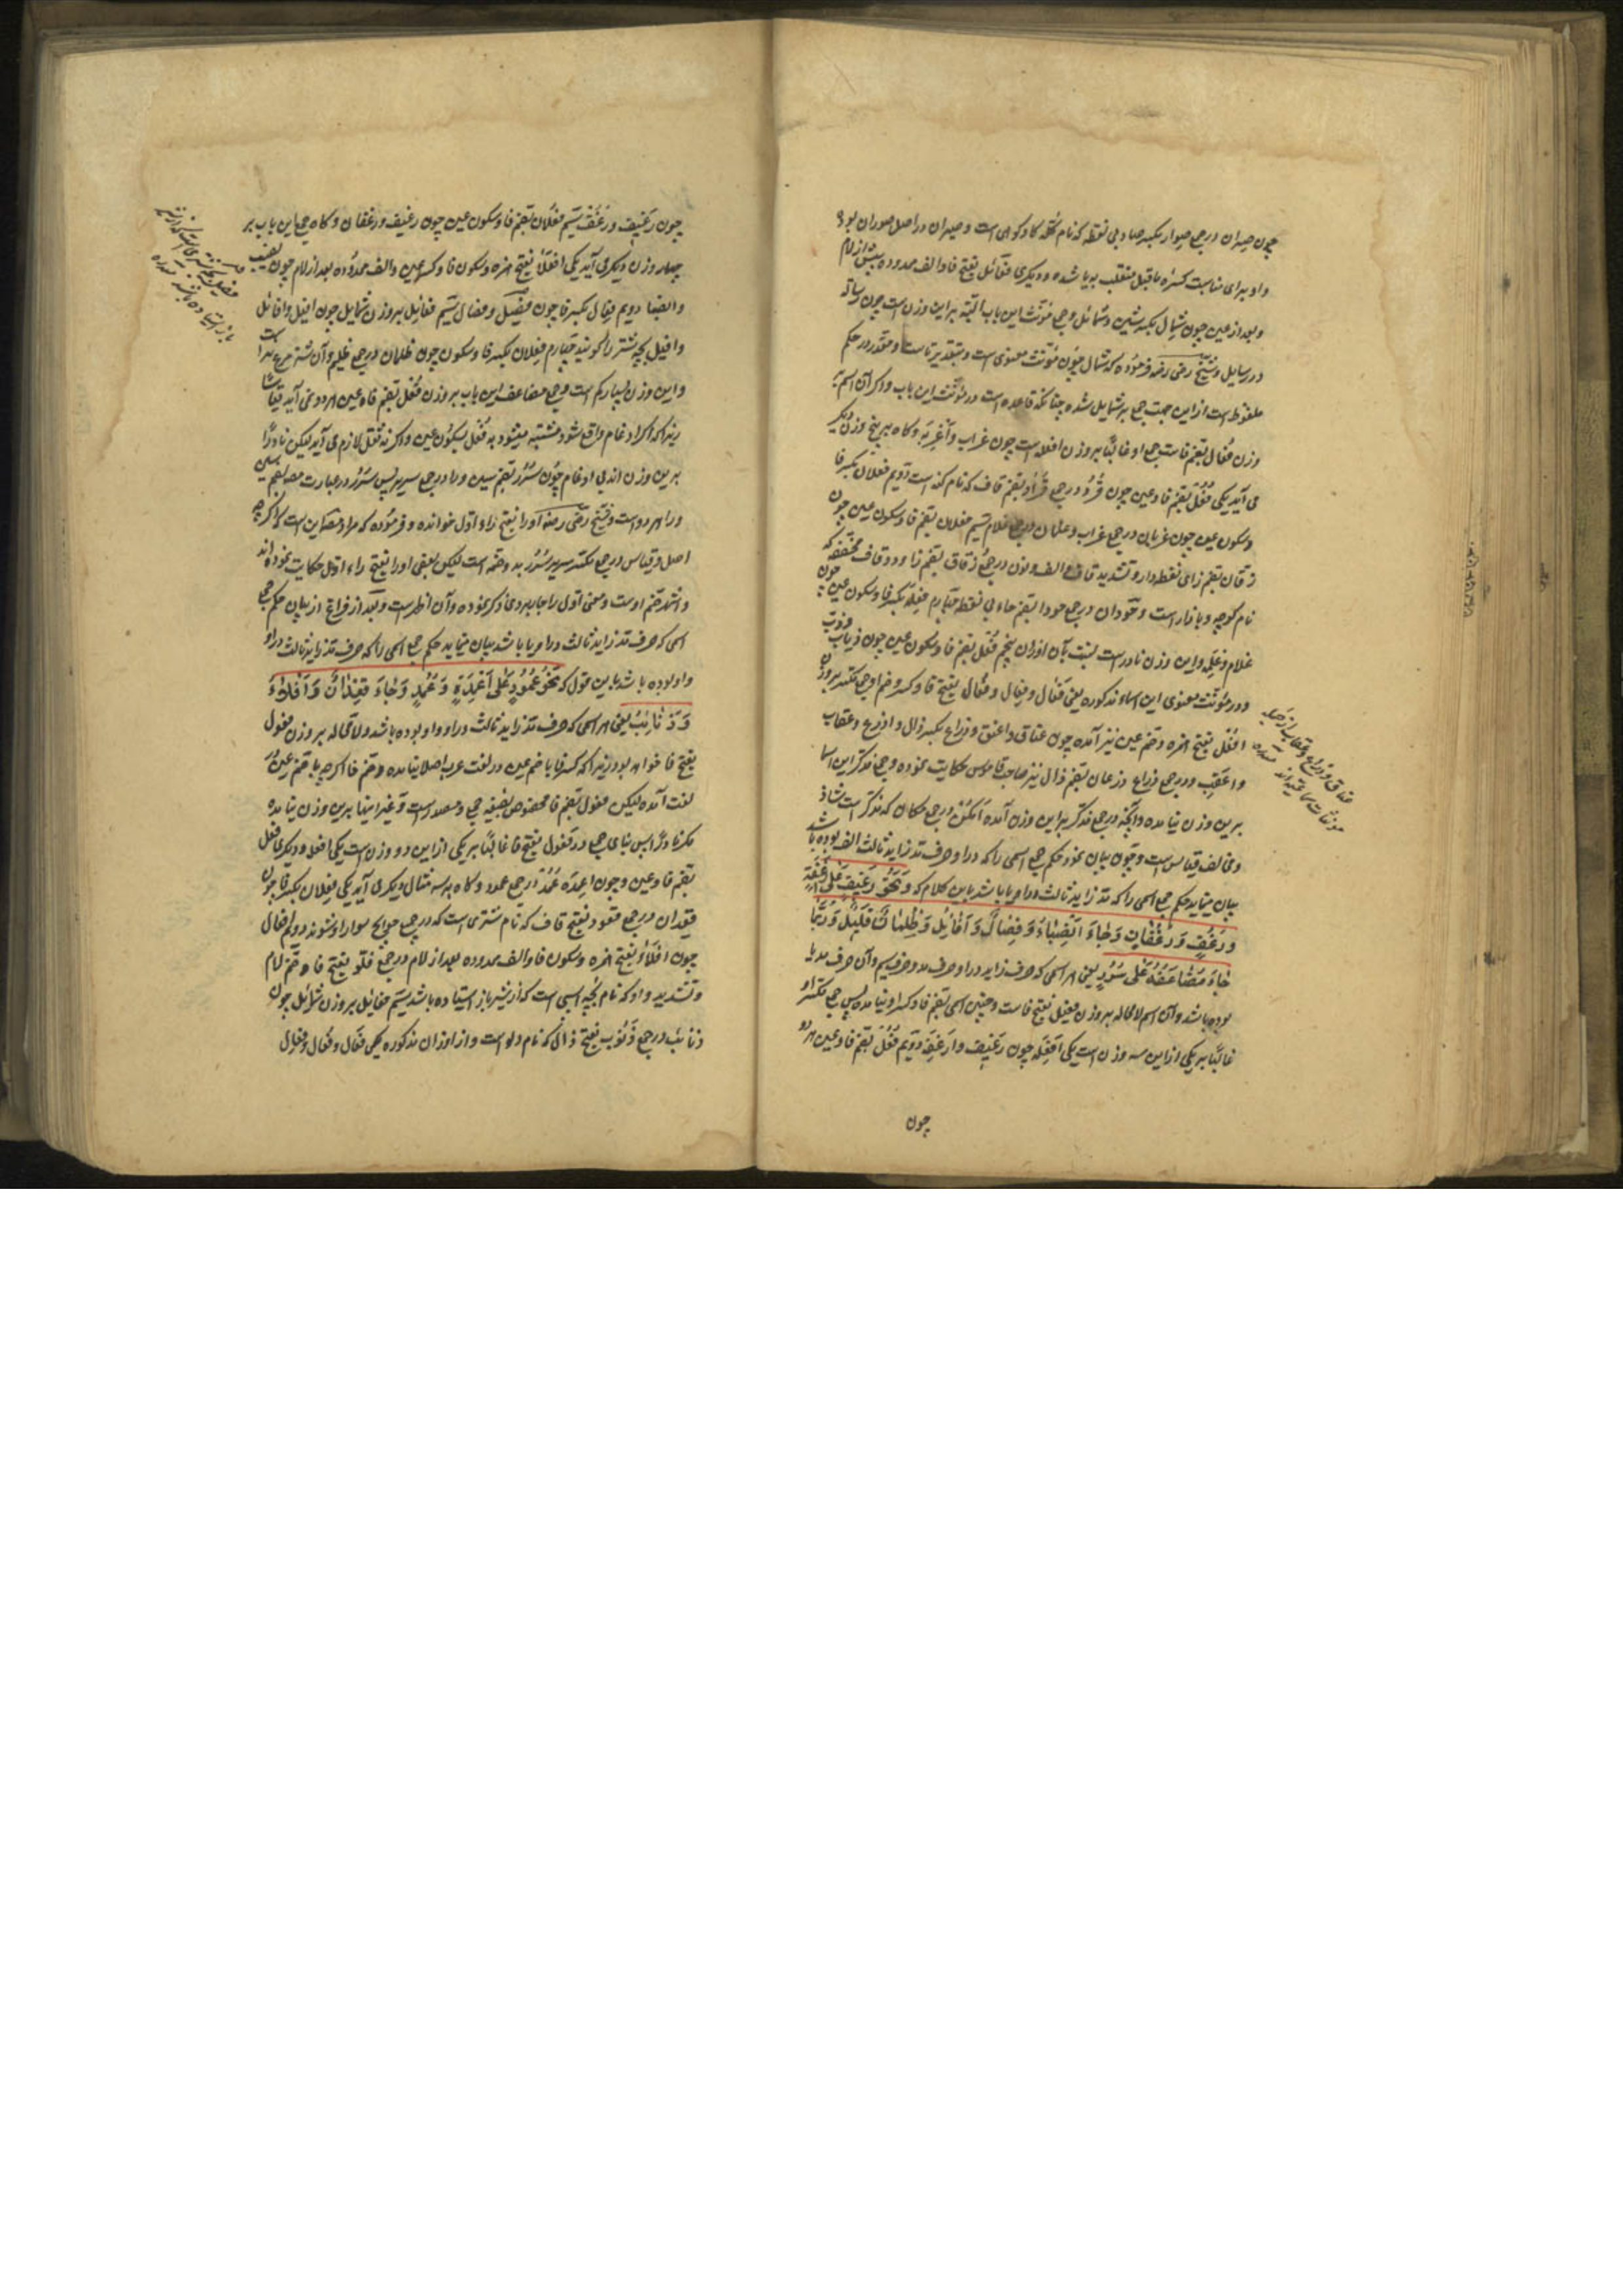 چون صیران در جمع صوار بکسر صاد بی نقطه که نام گله گاو کوهی است و صیران در اصل صوران بود
واو برای مناسبت کسره ماقبل منقلب به یا شده و دیگری فعائل بفتح فا و الف ممدوده پیش از لام
و بعد از عین چون شمال بکسر شین و شمائل و جمع مؤنث این باب البته بر این وزن است چون رسالة
در رسایل و شیخ رضی رضه فرموده که شمال چون مؤنث معنوی است و بتقدیر تا است و مقدر در حکم
ملفوظ است از این جهت جمع بر شمایل شده چنانکه قاعده است در مؤنث این باب و اگر آن اسم بر
وزن فعال بضم فاست جمع او غالبًا بر وزن افعله است چون غراب و أغربة و گاه بر پنج وزن دیگر
می آید یکی فُعُل بضم فا و عین چون قُرُد در جمع قُراد بضم قاف که نام کنه است دویم فعلان بکسر فا
و سکون عین چون غربان در جمع غراب و غلمان در جمع غلام سیم فعلان بضم فا و سکون عین چون
زقان بضم زای نقطه دار و تشدید قاف و الف و نون در جمع زقاق بضم زا و دو قاف مخففه که
نام کوچه و بازار است و حوران در جمع حوار بضم حاء بی نقطه چهارم فِعلَة بکسر فا و سکون عین چون
غلام و غِلمة و این وزن نادر است نسبت بآن اوزان پنجم فُعْل بضم فا و سکون عین چون ذباب و ذُبّ
و در مؤنث معنوی این اسماء مذکوره یعنی فَعال و فِعال و فُعال بفتح فا و کسر و ضم او جمع مکسر بر وزن
افعُل بفتح همزه و ضم عین نیز آمده چون عناق و اعنق و ذراع بکسر ذال و اذرع و عقاب
و اعقب و در جمع ذراع ذرعان بضم ذال نیز صاحب قاموس حکایت نموده و جمع مذکر این اسما
برین وزن نیامده و آنچه در جمع مذکر بر این وزن آمده أمکُن در جمع مکان که مذکر است شاذ
و مخالف قیاس است و چون بیان نمود حکم جمع اسمی را که در او حرف مد زاید ثالث الف بوده باشد
بیان مینماید حکم جمع اسمی را که مد زاید ثالث در او یا باشد باین کلام که وَ نَحْوُ رَغِیفٍ عَلٰی أَرْغِفَةٍ
وَ رُغُفٍ وَ رُغْفَانٍ وَ جَاءَ أَنْصِبَاءُ وَ فِصَالٌ وَ أَفَائِلُ وَ ظِلْمَانٌ قَلِیلٌ وَ رُبَّمَا
جَاءَ مُضَاعَفُهُ عَلٰی سُرُرٍ یعنی هر اسمی که حرف زاید در او حرف مد و حرف سیم و آن حرف مد یا
بوده باشد و آن اسم لا محاله بر وزن فعیل بفتح فاست و چنین اسمی بضم فا و کسر او نیامده پس جمع مکسر او
غالبًا بر یکی از این سه وزن است یکی افعله چون رغیف و ارغفة دویم فُعُل بضم فا و عین هر دو
چون
عناق و ذراع و عقاب از جمله
مؤنثات سماعیه اند
چون رغیف و رغف سیم فعلان بضم فا و سکون عین چون رغیف و رغفان و گاه جمع این باب بر
چهار وزن دیگر می آید یکی افعلاء بفتح همزه و سکون فا و کسر عین و الف ممدوده بعد از لام چون نصیب
و انصبا دویم فِعال بکسر فا چون فصیل و فصال سیم فعائل بر وزن شمایل چون افیل و افائل
و افیل بچه شتر را گویند چهارم فِعلان بکسر فا و سکون چون ظلمان در جمع ظلیم و آن شتر مرغ نر است
و این وزن بسیار کم است و جمع مضاعف این باب بر وزن فُعُل بضم فا و عین هر دو نمی آید قیاسًا
زیرا که اگر ادغام واقع شود مشتبه میشود به فُعْل بسکون عین و اگر نه ثقل لازم می آید لیکن نادرًا
برین وزن اند بی ادغام چون سُرُر بضم سین و را در جمع سریر پس سُرُر در عبارت مصه بضم سین
و را هر دو است و شیخ رضی رضه او را بفتح راء اول خوانده و فرموده که مراد مصه این است که اگر چه
اصل و قیاس در جمع مکسر سریر سُرُر بدو ضمه است لیکن بعضی او را بفتح راء اول حکایت نموده اند
و اشهر ضم اوست و معنی اول را جاربردی ذکر نموده و آن اظهر است و بعد از فراغ از بیان حکم جمع
اسمی که حرف مد زاید ثالث در او یا باشد بیان مینماید حکم جمع اسمی را که حرف مد زاید ثالث در او
واو بوده باشد باین قول که نَحْوُ عَمُودٍ عَلٰی أَعْمِدَةٍ وَ عُمُدٍ وَ جَاءَ قِعْدَانٌ وَ أَفْلَاءٌ
وَ ذَنَائِبُ یعنی هر اسمی که حرف مد زاید ثالث در او واو بوده باشد و لا محاله بر وزن فعول
بفتح فا خواهد بود زیرا که کسر فا با ضم عین در لغت عرب اصلا نیامده و ضم فا اگرچه با ضم عین در
لغت آمده لیکن فعول بضم فا مخصوص بصیغه جمع و مصدر است و غیر اینها برین وزن نیامده
مگر نادرًا پس بنای جمع در فعول بفتح فا غالبًا بر یکی از این دو وزن است یکی افعله و دیگری فعل
بضم فا و عین و چون اعمدة عُمُد در جمع عمود و گاه بر سه مثال دیگر می آید یکی فِعلان بکسر فا چون
قعدان در جمع قعود بفتح قاف که نام شتری است که در جمیع حوایج سوار او شوند دویم افعال
چون أفلاء بفتح همزه و سکون فا و الف ممدوده بعد از لام در جمع فلوّ بفتح فا و ضم لام
و تشدید واو که نام بچه اسبی است که از شیر باز استاده باشد سیم فعائل بر وزن شمائل چون
ذنائب در جمع ذنوب بفتح ذال که نام دلو است و از اوزان مذکوره یعنی فَعال و فُعال و فِعال